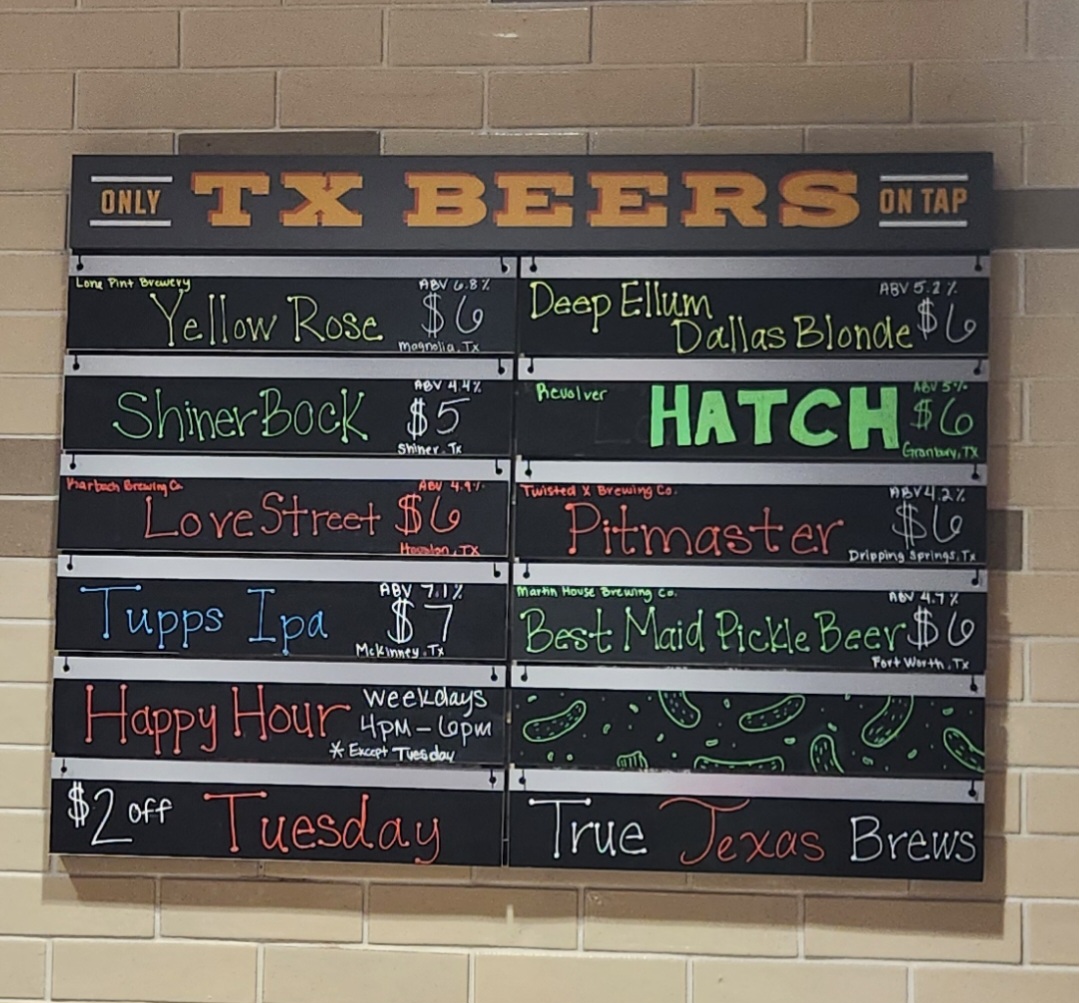 ONLY TX BEERS ON TAP
Lone Pint Brewery ABV 6.8%
Yellow Rose $6
Magnolia, Tx
ABV 4.4%
Shiner Bock $5
Shiner, Tx
Karbach Brewing Co. ABV 4.9%
Love Street $6
Houston, TX
ABV 7.1%
Tupps Ipa $7
McKinney, Tx
Happy Hour weekdays
4pm - 6pm
* Except Tuesday
$2 off Tuesday
Deep Ellum ABV 5.2%
Dallas Blonde $6
Revolver ABV 5%
HATCH $6
Granbury, TX
Twisted X Brewing Co. ABV 4.2%
Pitmaster $6
Dripping Springs, Tx
Martin House Brewing Co. ABV 4.7%
Best Maid Pickle Beer $6
Fort Worth, Tx
True Texas Brews